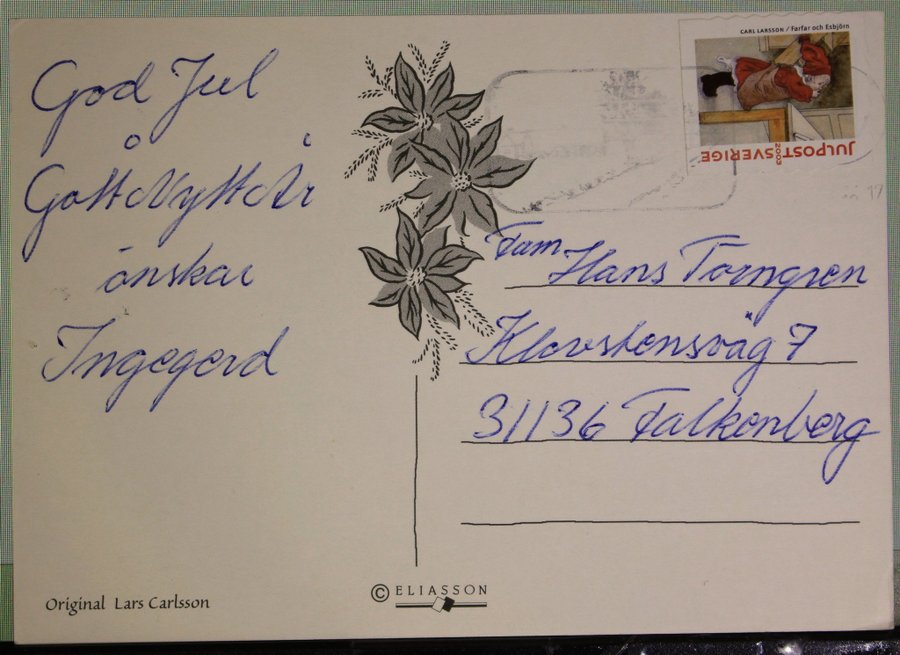 God Jul
O
Gott Nytt År
önskar
Ingegerd
Original Lars Carlsson
© ELIASSON
CARL LARSSON / Farfar och Esbjörn
JULPOST SVERIGE
2003
Fam Hans Torngren
Klovstensväg 7
31136 Falkenberg